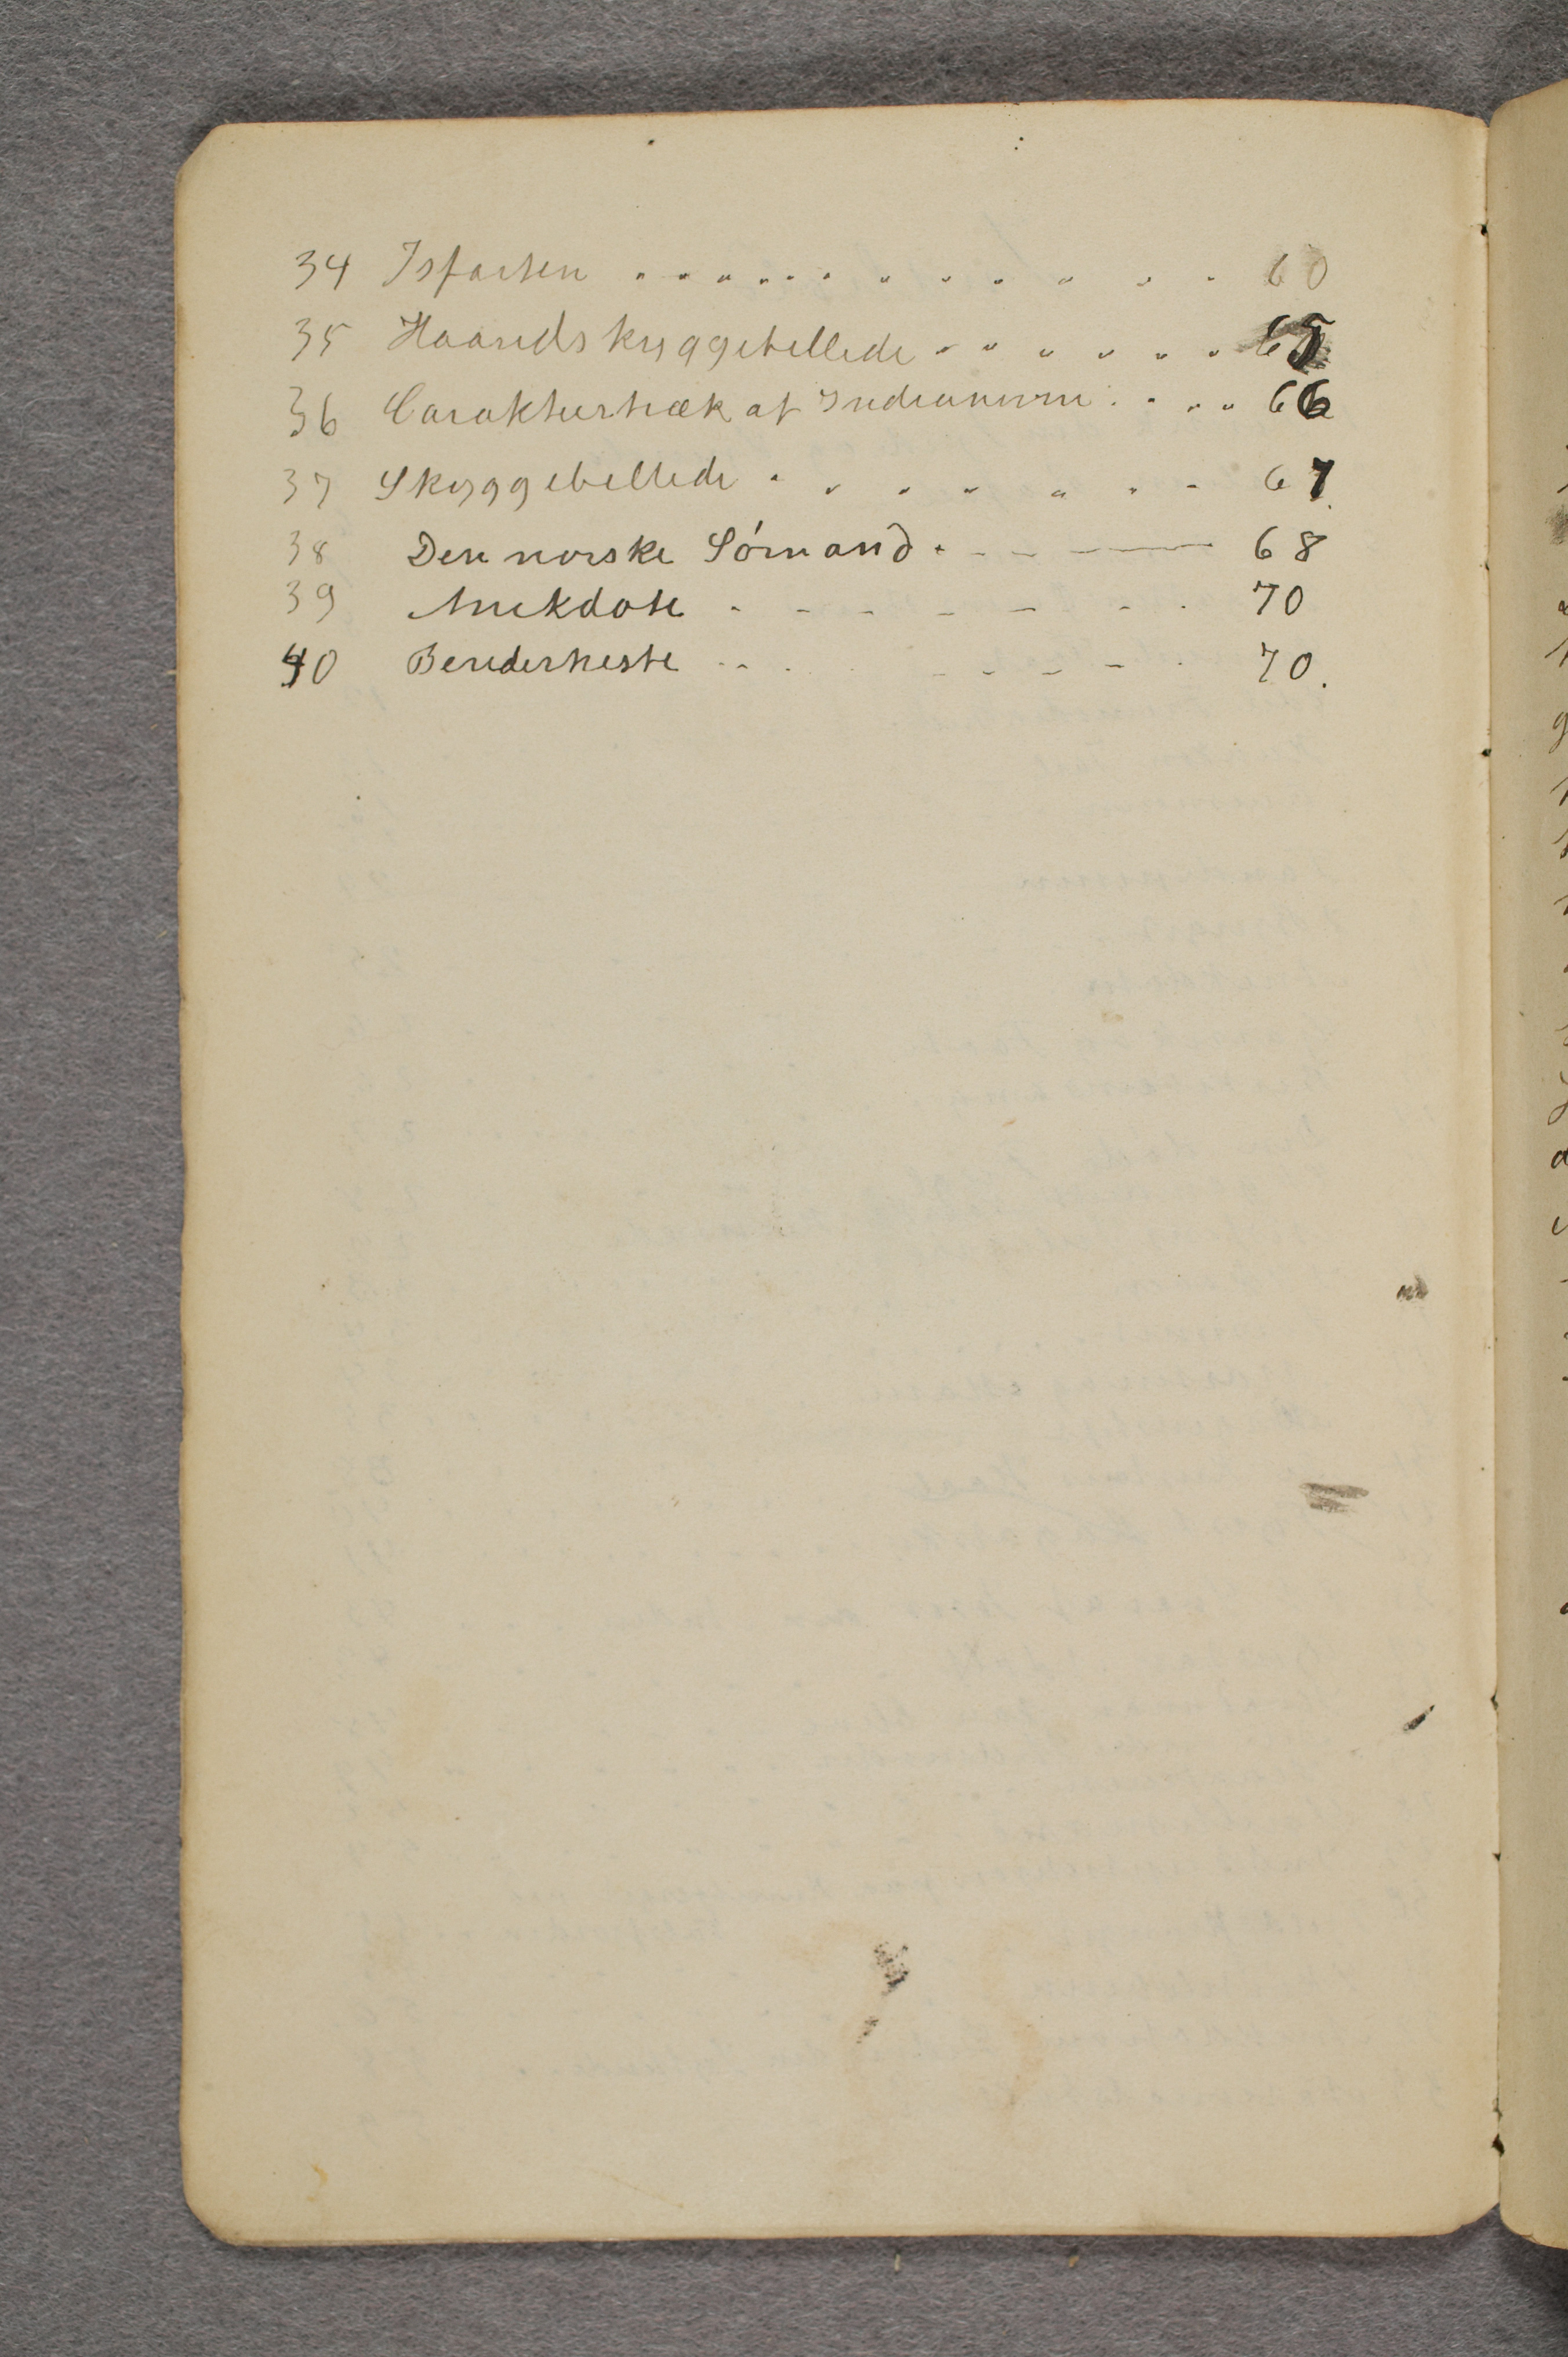 34 Isfarten . . . . . . . . . . . . . 60
35 Haandskyggebellede . . . . . . 65
36 Caraktertræk af Indianerne . . . . 66
37 Skyggebellede . . . . . . . 67.
38 Den norske Sómand . - - — 68
39 Anekdote . - - - - - - . 70
40 70.